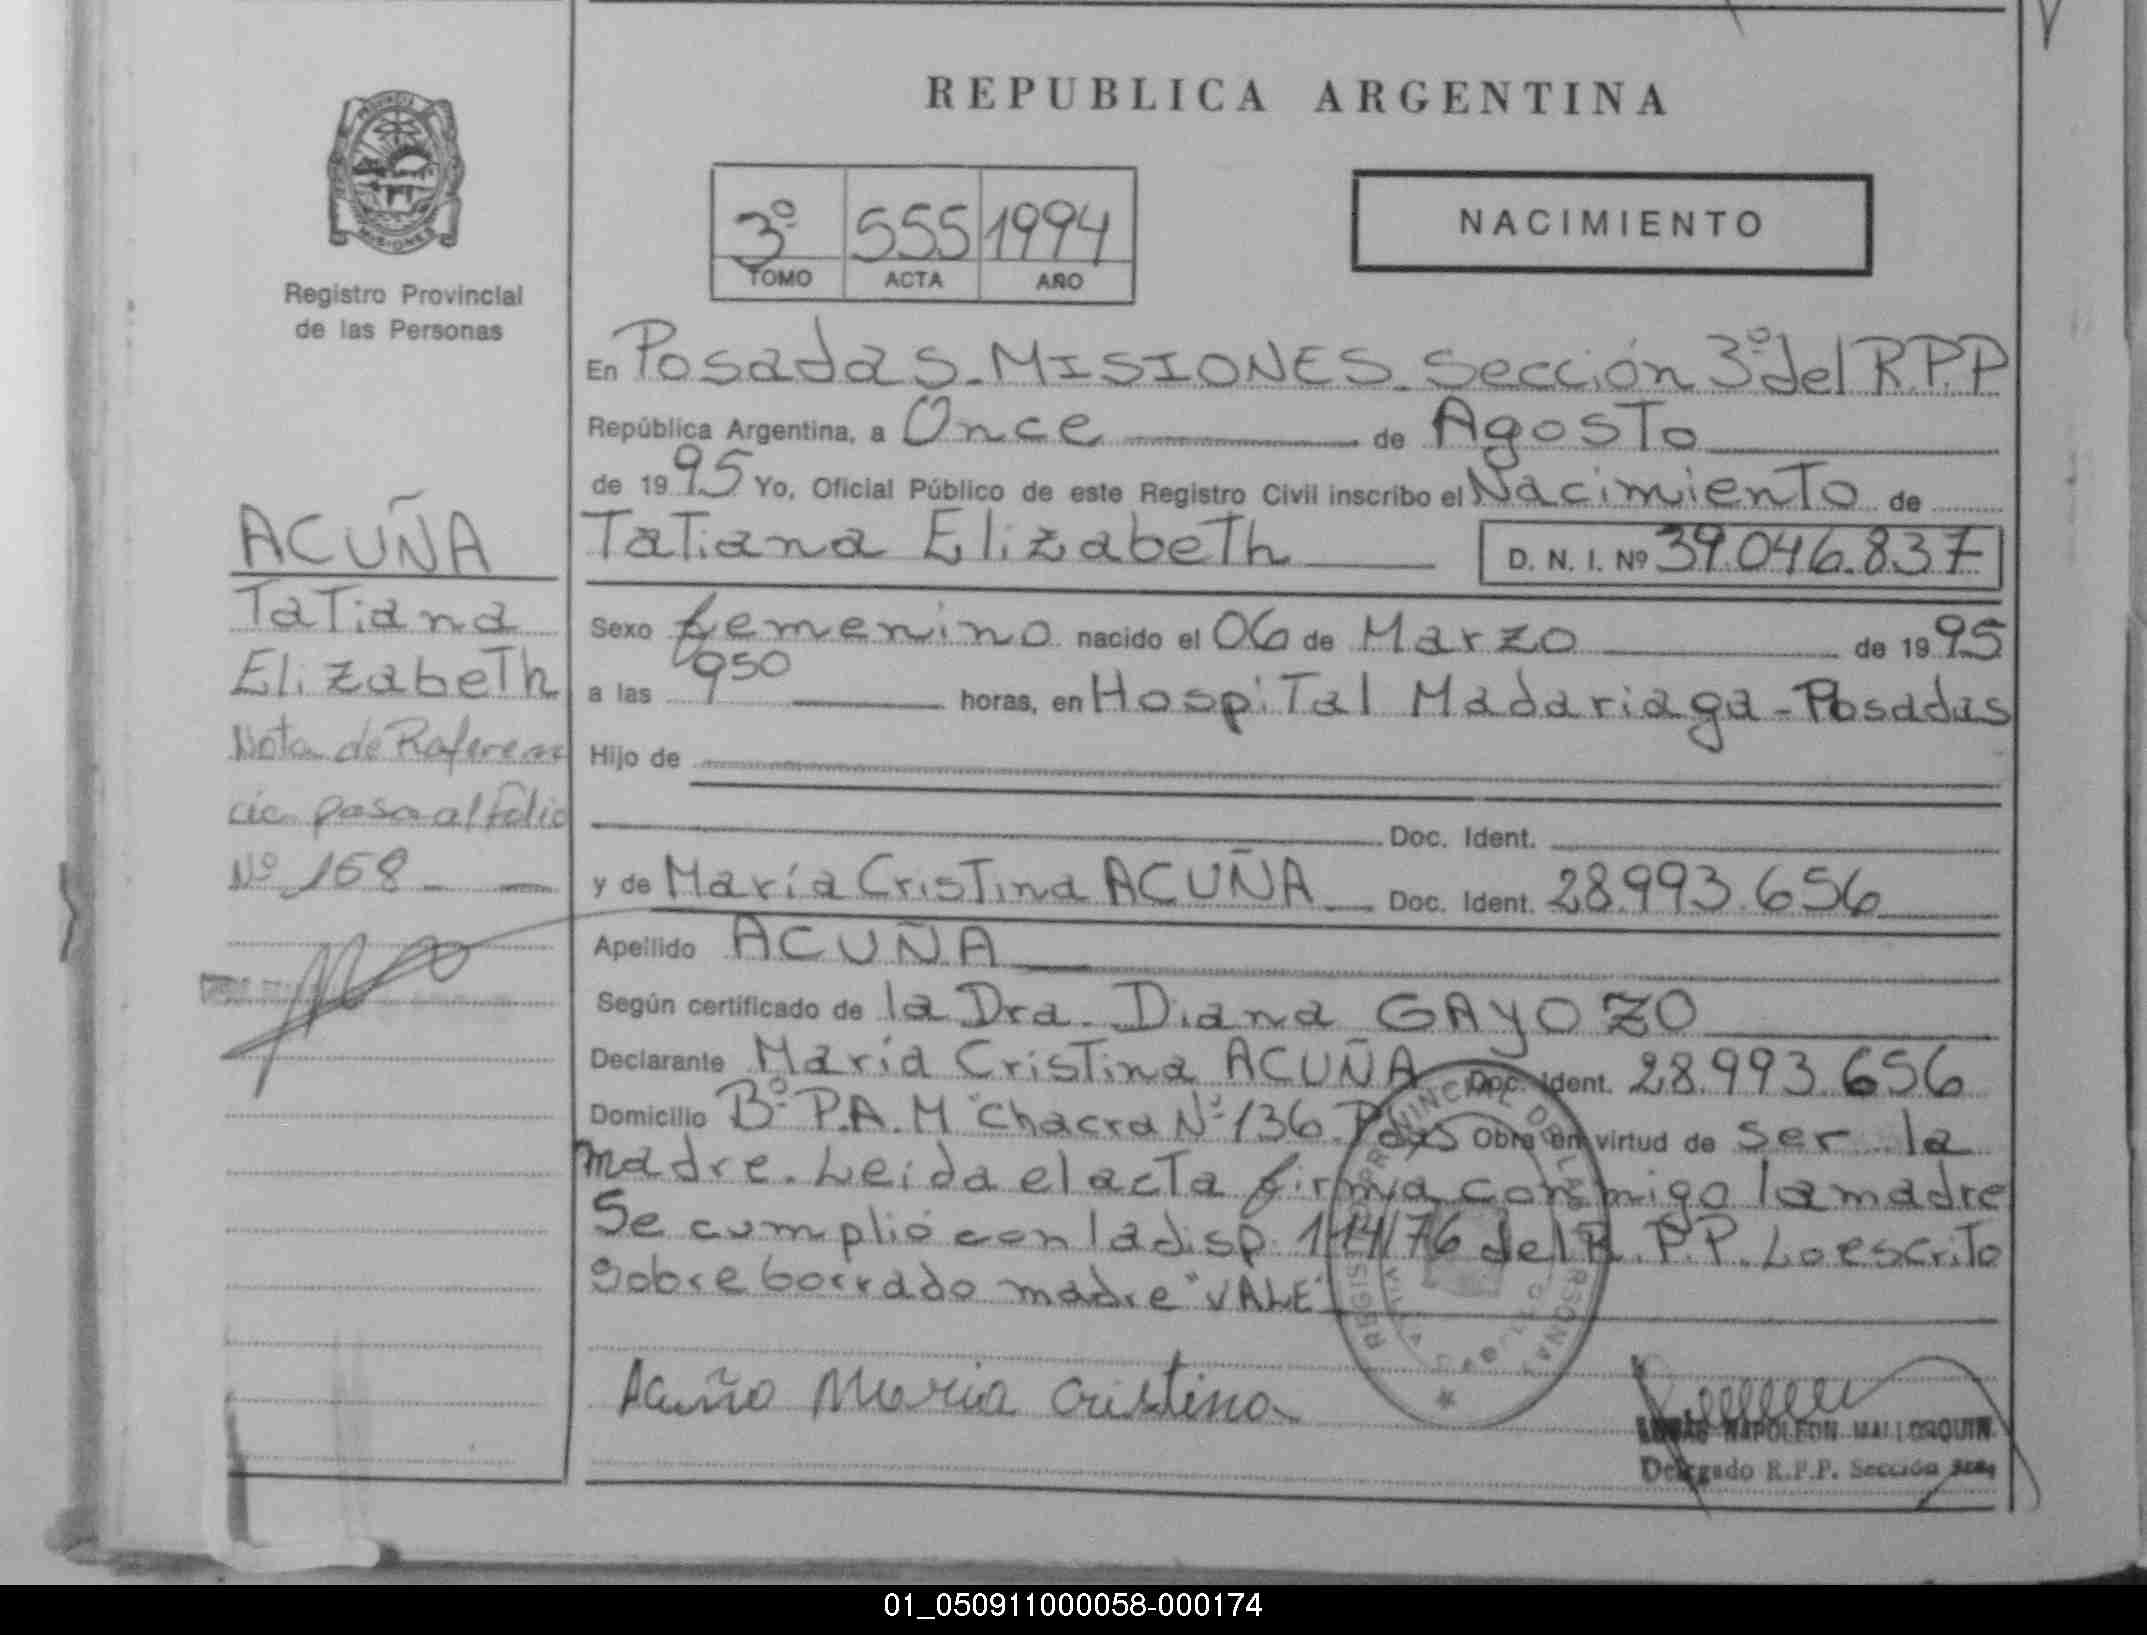 REPUBLICA ARGENTINA
PROVINCIA
MISIONES
Registro Provincial
de las Personas
3º 555 1994
TOMO ACTA AÑO
NACIMIENTO
En Posadas-MISIONES-Sección 3º del R.P.P
República Argentina, a Once de Agosto
de 1995 Yo, Oficial Público de este Registro Civil inscribo el Nacimiento de
Tatiana Elizabeth D. N. I. Nº 39.046.837
Sexo femenino nacido el 06 de Marzo de 1995
a las 950 horas, en Hospital Madariaga-Posadas
Hijo de
Doc. Ident.
y de María Cristina ACUÑA Doc. Ident. 28.993.656
Apellido ACUÑA
Según certificado de la Dra. Diana GAYOZO
Declarante María Cristina ACUÑA Doc. Ident. 28.993.656
Domicilio Bº P.A.M Chacra Nº 136. Pdas Obra en virtud de ser la
madre. Leida el acta firma conmigo la madre
Se cumplió con la disp. 114/76 del R.P.P. Lo escrito
sobre borrado madre "VALE"
Acuña Maria Cristina
NAPOLEON MALLORQUIN
Delegado R.P.P. Sección
ACUÑA
Tatiana
Elizabeth
Nota de Referen
cia pasa al folio
Nº 168
01_050911000058-000174